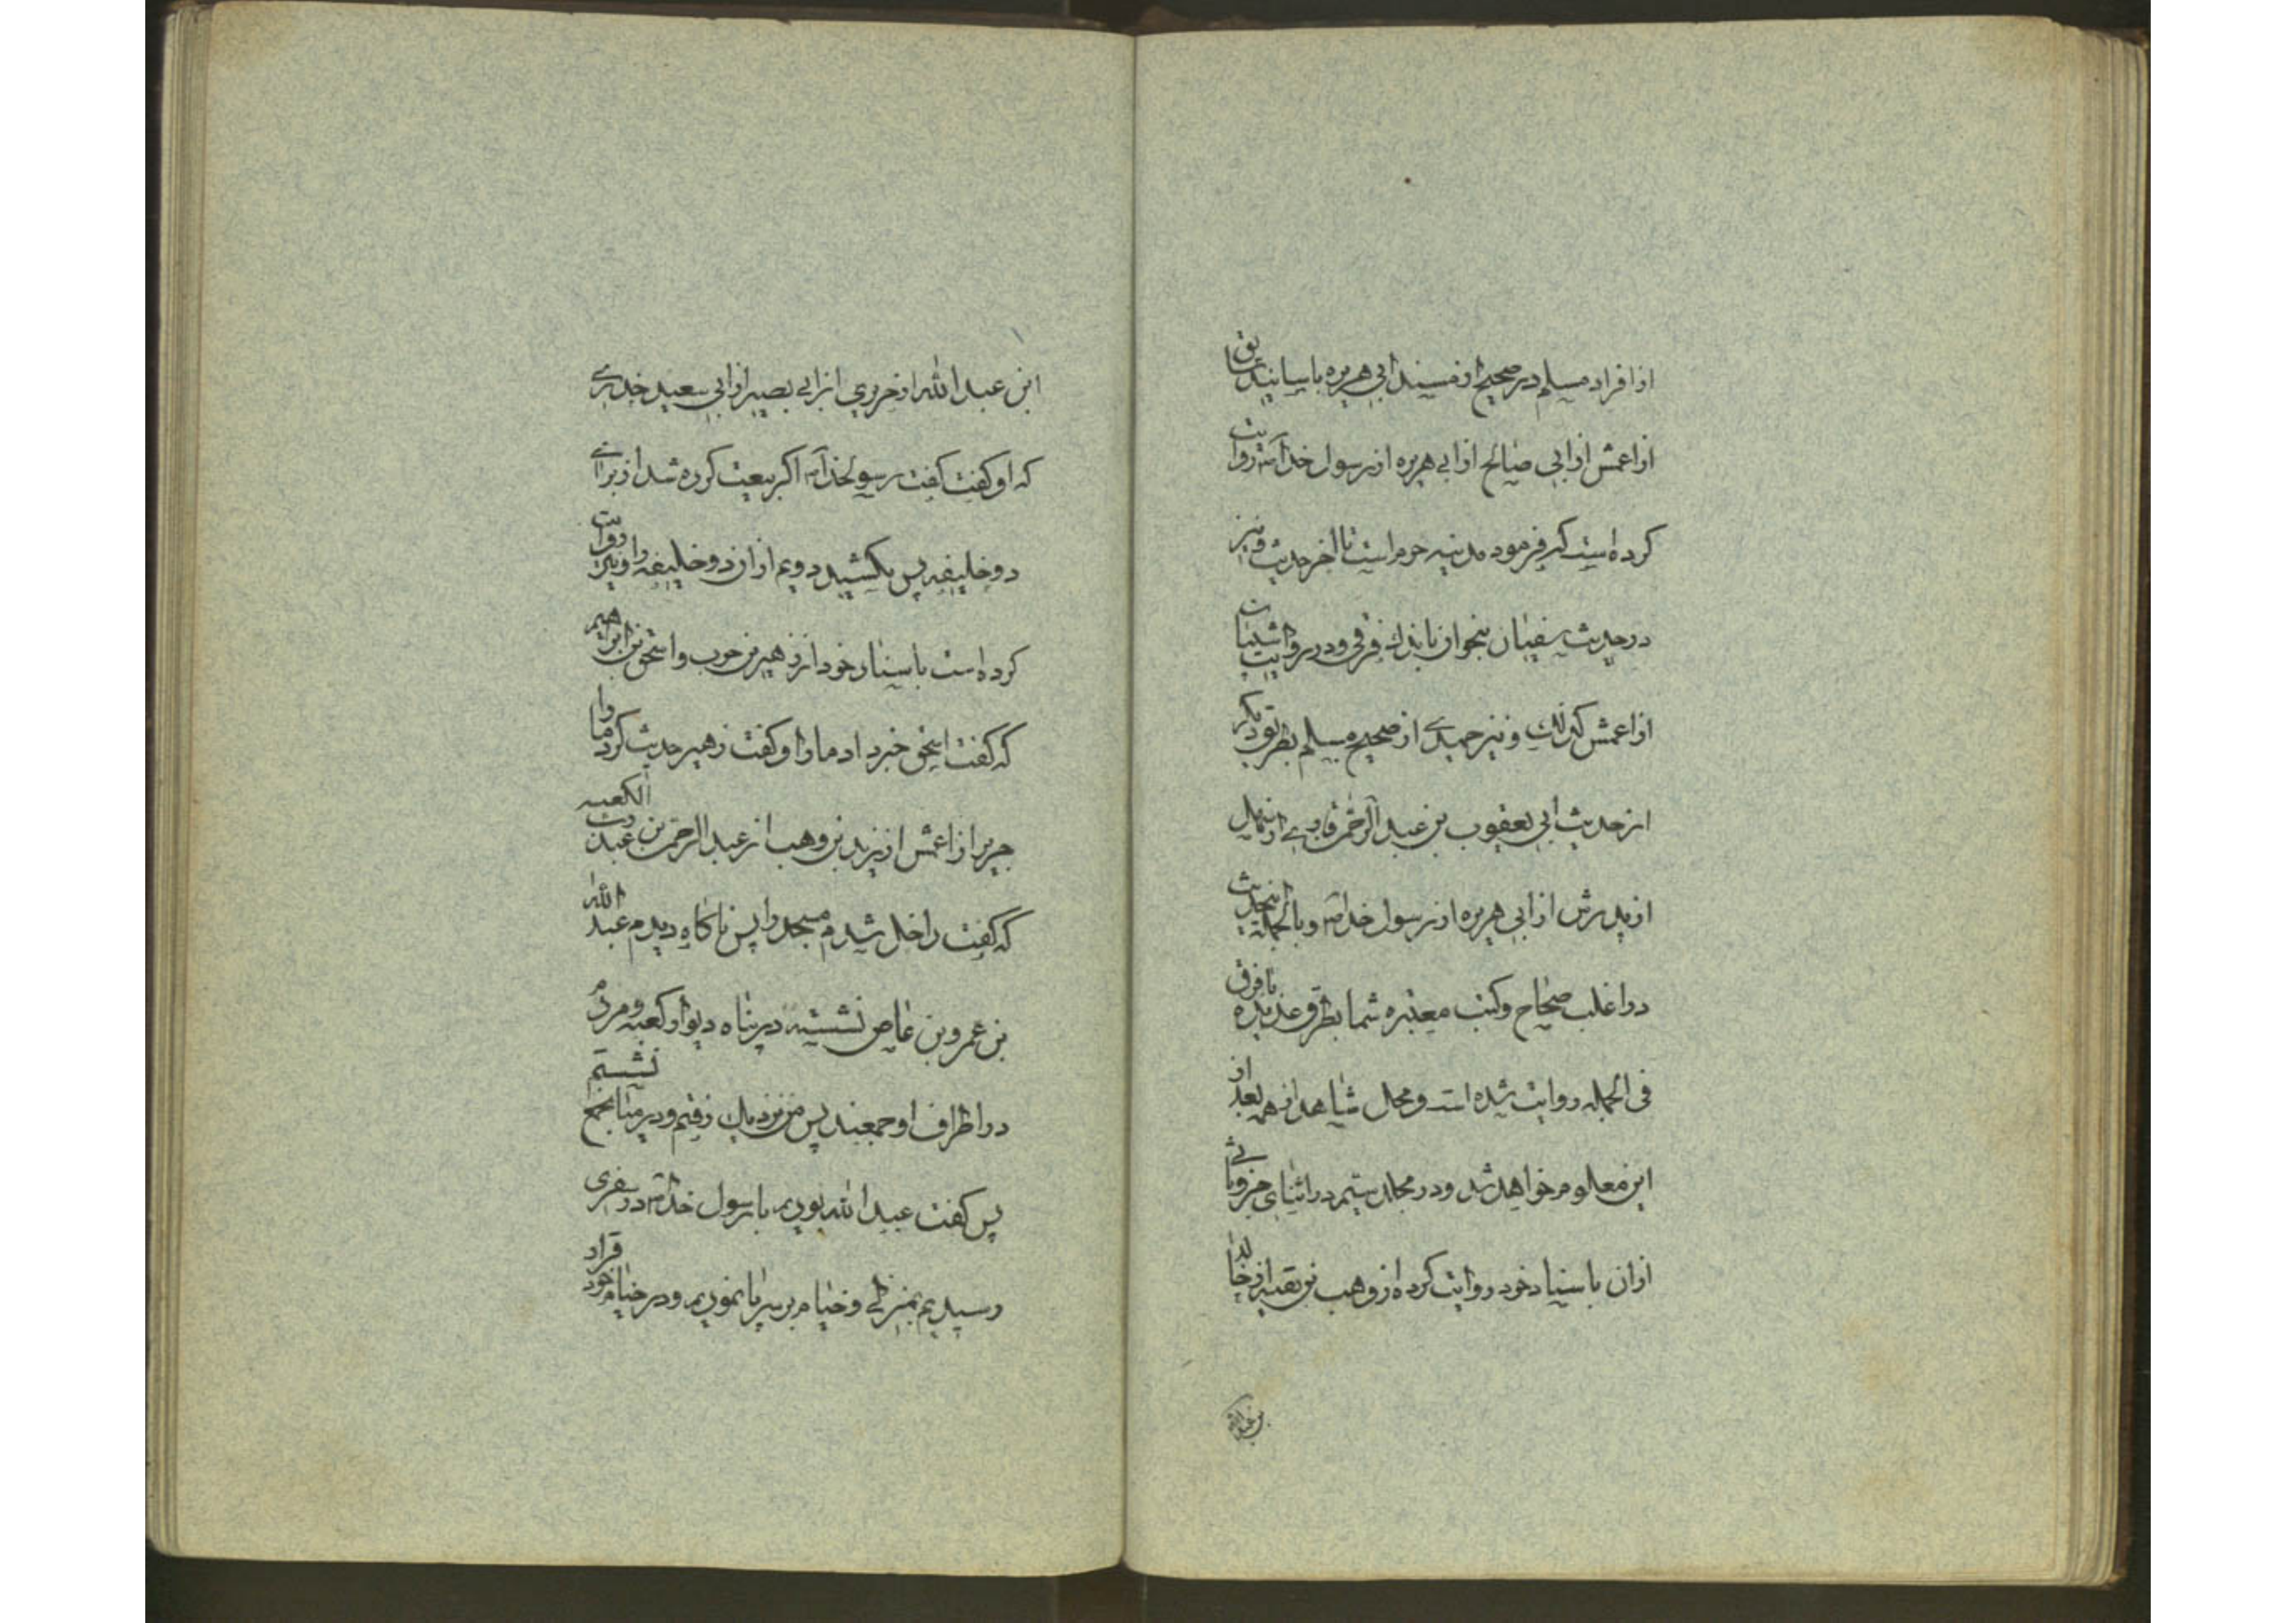 از افراد مسلم در صحیح از مسند ابی هریره باسانید
از اعمش از ابی صالح از ابی هریره از رسول خدا روایت
کرده است که فرمود مدینه حرم است تا اخر حدیث و نیز
در حدیث سفیان بنحوان باندک فرقی و در روایت
از اعمش کذلک و نیز حمیدی از صحیح مسلم بطریق دیکر
از حدیث ابی یعقوب بن عبد الرحمن قاری از سهیل
از پدرش از ابی هریره از رسول خدا و بالجمله اینحدیث
در اغلب صحاح و کتب معتبره شما بطرق عدیده با فرق
فی الجمله روایت شده است و محل شاهد از همه بعد از
این معلوم خواهد شد و در مجلد ستیم در اثنای جزو ثانی
از ان باسناد خود روایت کرده از وهب بن بقیه از خالد
بن عبدالله
ابن عبد الله از خریری از ابی بصیر از ابی سعید خدری
که او کفت کفت رسولخدا اکر بیعت کرده شد از برای
دو خلیفه پس بکشید دویم از ان دو خلیفه را و نیز روایت
کرده است باسناد خود از زهیر بن حرب و اسحق بن ابراهیم
که کفت اسحق خبر داد ما را و کفت زهیر حدیث کرد ما را
جریر از اعمش از زید بن وهب از عبد الرحمن بن عبد رب الکعبه
که کفت داخل شدم مسجد را پس ناکاه دیدم عبد الله
بن عمرو بن عاص نشسته در پناه دیوار کعبه و مردم
در اطراف او جمعند پس من نزدیک رفتم و در میان جمع نشستم
پس کفت عبد الله بودیم با رسول خدا در سفری
رسیدیم بمنزلی و خیام بر سر پا نمودیم و در خیام خود قرار